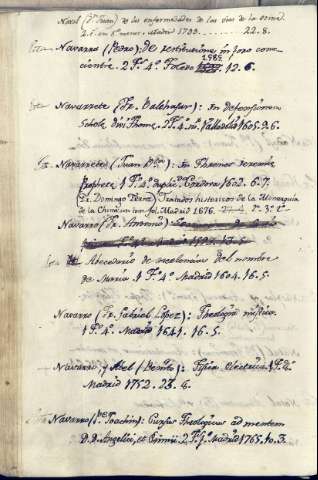 Naval (Dn. Juan) de las enfermedades de las vias de la orina
2. t. en 8º menor. Madrid 1799. 22. 8.
Navarro (Pedro): de restitutione in foro cons-
cientiæ. 2 Fs. 4º Toledo 1585. 12. 6.
Navarrete (Fr. Balthasar): In defensionem
Schole divi Thome. 2 Fs. 4º m. Valladolid 1605. 9. 6.
Navarrete (Juan): In Threnos Jeremie
Prophete 1 Fº 4º duplic. Cordova 1602. 6. 7.
(Fr. Domingo Perez) Tratados historicos de la Monarquia
de la China un tom. fol. Madrid 1676.
Navarro (Fr. Antonio)
Abecedario de excelencias del nombre
de Maria 1 Fº 4º Madrid 1604. 16. 5.
Navarro (Fr. Gabriel Lopez): Theologia mistica
1 Fº 4º Madrid 1641. 16. 5.
Navarro, y Abel (Benito): Fisica electrica 1 Fº 4º
Madrid 1752. 28. 4.
Navarro (Joachin): Cursus Theologicus ad mentem
D. D. Angelici, et Eximii 2 Fs. 4º Madrid 1765. 10. 3.